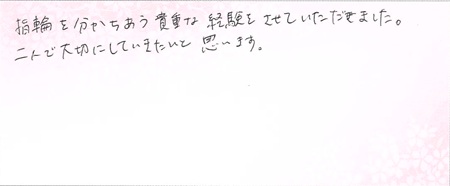 指輪を分かちあう貴重な経験をさせていただきました。
二人で大切にしていきたいと思います。